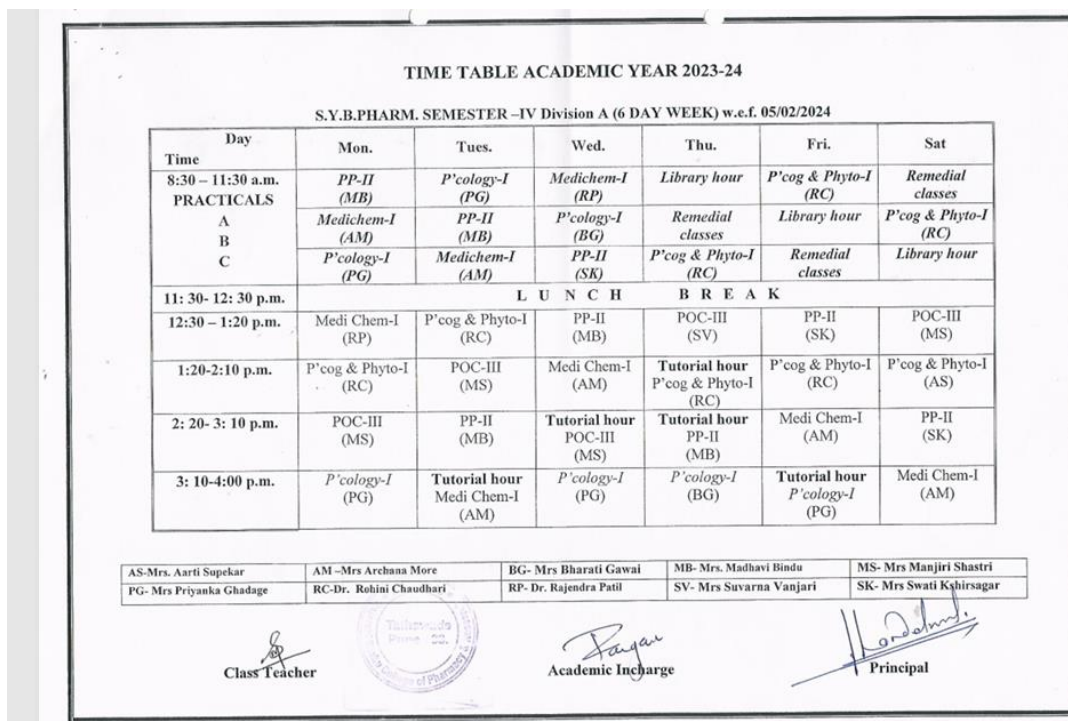 TIME TABLE ACADEMIC YEAR 2023-24
S.Y.B.PHARM. SEMESTER –IV Division A (6 DAY WEEK) w.e.f. 05/02/2024
Day
Time
Mon.
Tues.
Wed.
Thu.
Fri.
Sat
8:30 – 11:30 a.m.
PRACTICALS
A
B
C
PP-II
(MB)
P'cology-I
(PG)
Medichem-I
(RP)
Library hour
P'cog & Phyto-I
(RC)
Remedial
classes
Medichem-I
(AM)
PP-II
(MB)
P'cology-I
(BG)
Remedial
classes
Library hour
P'cog & Phyto-I
(RC)
P'cology-I
(PG)
Medichem-I
(AM)
PP-II
(SK)
P'cog & Phyto-I
(RC)
Remedial
classes
Library hour
11: 30- 12: 30 p.m.
L U N C H B R E A K
12:30 – 1:20 p.m.
Medi Chem-I
(RP)
P'cog & Phyto-I
(RC)
PP-II
(MB)
POC-III
(SV)
PP-II
(SK)
POC-III
(MS)
1:20-2:10 p.m.
P'cog & Phyto-I
(RC)
POC-III
(MS)
Medi Chem-I
(AM)
Tutorial hour
P'cog & Phyto-I
(RC)
P'cog & Phyto-I
(RC)
P'cog & Phyto-I
(AS)
2: 20- 3: 10 p.m.
POC-III
(MS)
PP-II
(MB)
Tutorial hour
POC-III
(MS)
Tutorial hour
PP-II
(MB)
Medi Chem-I
(AM)
PP-II
(SK)
3: 10-4:00 p.m.
P'cology-I
(PG)
Tutorial hour
Medi Chem-I
(AM)
P'cology-I
(PG)
P'cology-I
(BG)
Tutorial hour
P'cology-I
(PG)
Medi Chem-I
(AM)
AS-Mrs. Aarti Supekar
AM –Mrs Archana More
BG- Mrs Bharati Gawai
MB- Mrs. Madhavi Bindu
MS- Mrs Manjiri Shastri
PG- Mrs Priyanka Ghadage
RC-Dr. Rohini Chaudhari
RP- Dr. Rajendra Patil
SV- Mrs Suvarna Vanjari
SK- Mrs Swati Kshirsagar
College of Pharmacy
Class Teacher
Academic Incharge
Principal